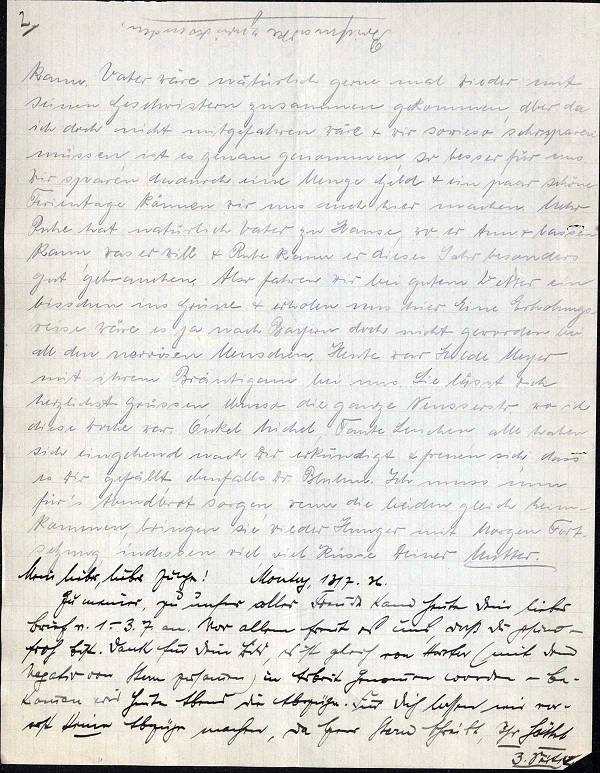 2/
kann. Vater wäre natürlich gerne mal wieder mit
seinen Geschwistern zusammen gekommen, aber da
ich doch nicht mitgefahren wäre + wir sowieso sehr sparen
müssen ist es genau genommen so besser für uns.
Wir sparen dadurch eine Menge Geld + ein paar schöne
Ferientage können wir uns auch hier machen. Mehr
Ruhe hat natürlich Vater zu Hause, wo er tun + lassen
kann was er will + Ruhe kann er dieses Jahr besonders
gut gebrauchen. Also fahren wir bei gutem Wetter ein
bisschen ins Grüne + erholen uns hier. Eine Erholungs
reise wäre es ja nach Bayern doch nicht geworden bei
all den nervösen Menschen. Heute war Hilde Meyer
mit ihrem Bräutigam bei uns. Sie lässt Dich
herzlichst grüssen ebenso die ganze Neusserstr. wo ich
diese Woche war. Onkel Michel, Tante Lenchen alle haben
sich eingehend nach Dir erkundigt + freuen sich, dass
es Dir gefällt ebenfalls Dr. Bluhm. Ich muss nun
für's Abendbrot sorgen, wenn die beiden gleich heim-
kommen, bringen sie wieder Hunger mit. Morgen Fort
setzung, indessen viel viel Küsse Deiner Mutter.
Mein lieber, lieber Junge! Montag, 13/7. 36
Zu meiner, zu unser aller Freude kam heute Dein lieber
Brief v. 1.-3.7. an. Vor allem freut es uns, daß du gesund
froh bist. Dank für dein Bild, es ist gleich von (mit dem
Negativ von Stern zusammen) in Arbeit genommen worden – be-
kommen wir heute Abend die Abzüge. Für Dich lassen wir vor-
erst keine Abzüge machen, da Herr Stern schreibt, Ihr
3. Seite